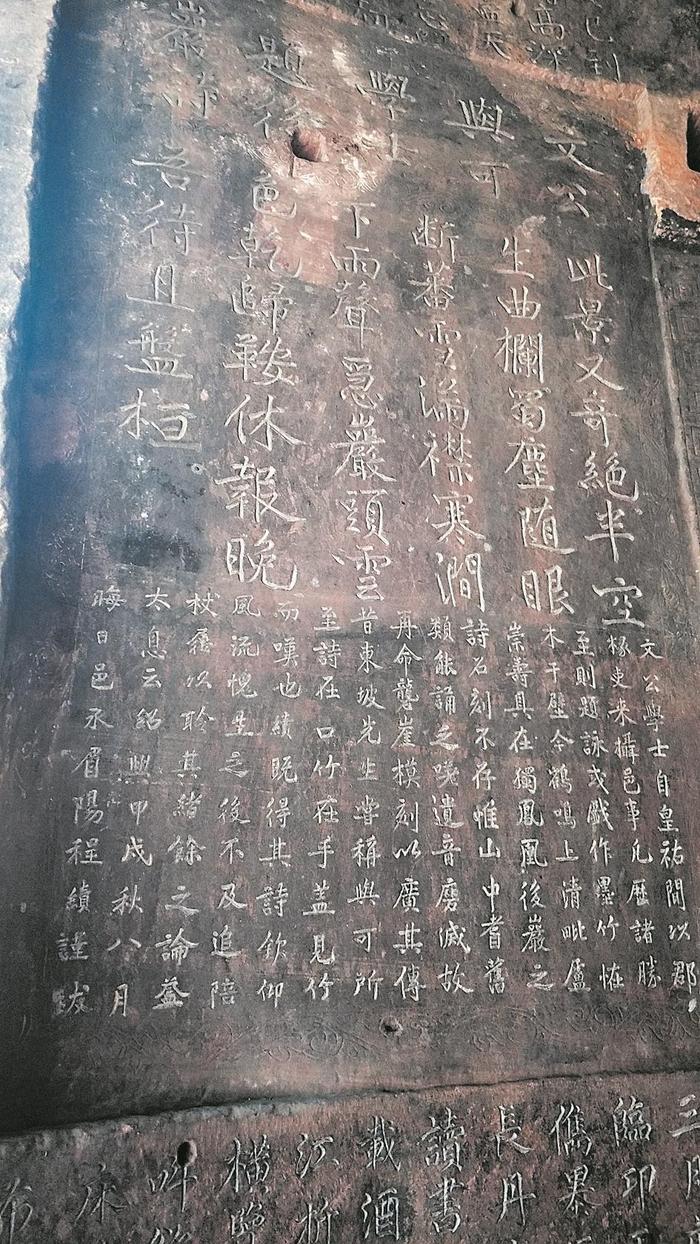 已到
文公
與可
學士
題後
巖詩
此景又奇絕半空
生曲欄蜀塵随眼
断蕃雪滿襟寒澗
下雨聲急巖頭雲
色乾歸鞍休報晚
吾待且盤桓
文公學士自皇祐間以郡
椽吏来攝邑事凡歷諸勝
至則題詠或戲作墨竹怪
木于壁今鶴鳴上清毗盧
崇壽具在獨鳳凰後巖之
詩石刻不存惟山中耆舊
類能誦之嘆遺音磨滅故
再命礱崖模刻以廣其傳
昔東坡先生嘗稱與可所
至詩在口竹在手蓋見竹
而嘆也績既得其詩欽仰
風流愧生之後不及追陪
杖屨以聆其緒餘之論益
太息云紹興甲戌秋八月
晦日邑承眉陽程績謹跋
三月
臨邛
儁
長丹
讀書
載酒
江
橫
床
布